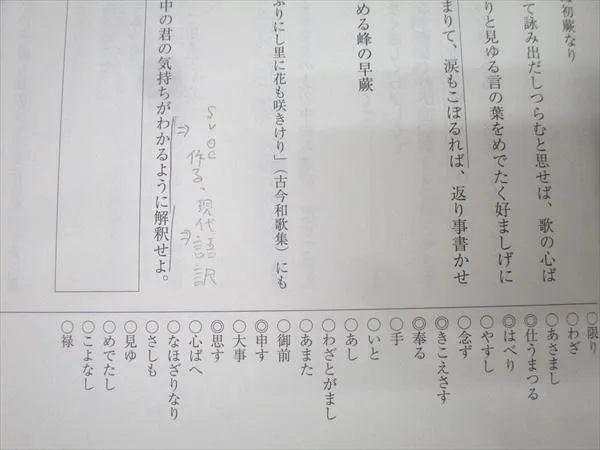 初蕨なり
て詠み出だしつらむと思せば、歌の心ば
りと見ゆる言の葉をめでたく好ましげに
まりて、涙もこぼるれば、返り事書かせ
める峰の早蕨
ぶりにし里に花も咲きけり」（古今和歌集）にも
SVOC
作る、現代語訳
中の君の気持ちがわかるように解釈せよ。
○限り
○わざ
○あさまし
◎仕うまつる
◎はべり
○やすし
○念ず
◎きこえさす
◎奉る
○手
○いと
○あし
○わざとがまし
○あまた
○御前
◎申す
○大事
◎思す
○心ばへ
○なほざりなり
○さしも
○見ゆ
○めでたし
○こよなし
○禄